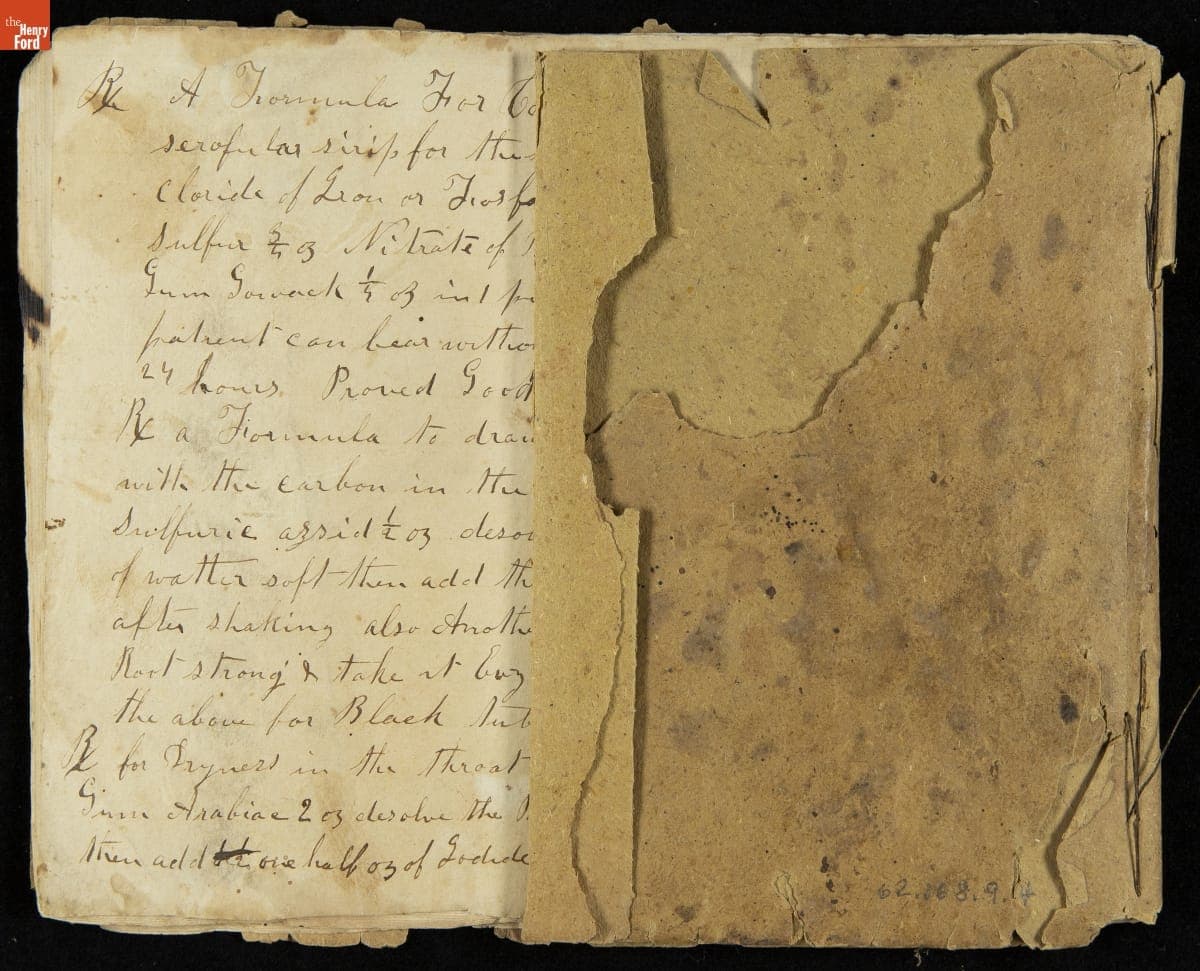 the
Henry
Ford
℞ A Formula For
serofular sirip for the
cloride of Iron or
sulfur oz Nitrate of
Gum oz in 1
patient can bear
24 hours. Proved Good
℞ a Formula to
with the carbon in the
sulfuric assid ½ oz
of watter soft then add
after shaking also
Root strong & take it
the above for Black
℞ for Dryness in the throat
Gum Arabiac 2 oz desolve the
then add one half oz of
62.168.9.4